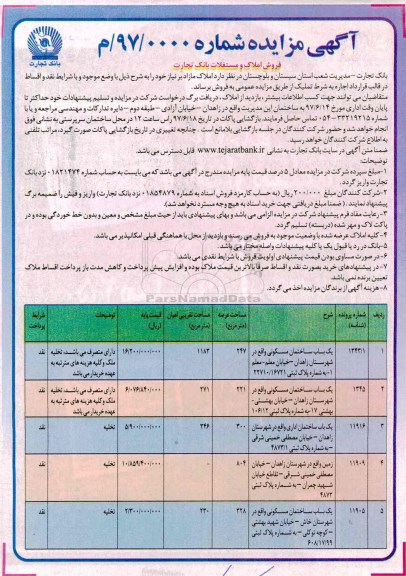 آگهی مزایده شماره ۹۷/۰۰۰۰/م
فروش املاک و مستغلات بانک تجارت
بانک تجارت
بانک تجارت – مدیریت شعب استان سیستان و بلوچستان در نظر دارد املاک مازاد بر نیاز خود را به شرح ذیل با وضع موجود و با شرایط نقد و اقساط
در قالب قرارداد اجاره به شرط تملیک از طریق مزایده عمومی به فروش برساند.
متقاضیان می توانند جهت کسب اطلاعات بیشتر، بازدید از املاک، دریافت برگ درخواست شرکت در مزایده و تسلیم پیشنهادات خود حداکثر تا
پایان وقت اداری مورخ ۹۷/۶/۱۴ به ساختمان این مدیریت واقع در زاهدان – خیابان آزادی – طبقه دوم – دایره تدارکات و مهندسی مراجعه و یا با
شماره ۳۳۲۱۹۲۱۵ – ۰۵۴ تماس حاصل فرمایند. بازگشایی پاکات در تاریخ ۹۷/۶/۱۸ راس ساعت ۱۲ در محل ساختمان سرپرستی به نشانی فوق
انجام خواهد شد و حضور شرکت کنندگان در جلسه بازگشایی بلامانع است. چنانچه تغییری در تاریخ بازگشایی پاکات صورت گیرد، مراتب تلفنی
به اطلاع شرکت کنندگان خواهد رسید.
ضمنا متن آگهی در سایت بانک تجارت به نشانی www.tejaratbank.ir قابل دسترس می باشد.
توضیحات
۱–مبلغ سپرده شرکت در مزایده معادل ۵ درصد قیمت پایه مزایده مندرج در آگهی می باشد که می بایست به حساب شماره ۰۱۸۲۱۴۷۴ نزد بانک
تجارت واریز گردد.
۲–شرکت کنندگان مبلغ ۲۰۰/۰۰۰ ریال (به حساب کارمزد فروش اسناد به شماره ۰۱۸۵۴۸۷۹ نزد بانک تجارت) واریز و فیش را ضمیمه برگ
پیشنهاد نمایند. (ضمنا مبلغ دریافتی جهت خرید اسناد به هیچ وجه مسترد نخواهد شد).
۳–رعایت مفاد فرم پیشنهاد شرکت در مزایده الزامی می باشد و بهای پیشنهادی باید از حیث مبلغ مشخص و معین و بدون خط خوردگی بوده و در
پاکت لاک و مهر شده (دربسته) تسلیم گردد.
۴–کلیه املاک عرضه شده با وضعیت موجود به فروش می رسند و بازدید از محل با هماهنگی قبلی امکانپذیر می باشد.
۵–بانک در رد یا قبول یک یا کلیه پیشنهادات واصله مختار می باشد.
۶–در صورت مساوی بودن قیمت پیشنهادی اولویت فروش با شرایط نقدی می باشد.
۷–در پیشنهادهای خرید بصورت نقد و اقساط صرفا بالاترین قیمت ملاک بوده و افزایش پیش پرداخت و کاهش مدت باز پرداخت اقساط ملاک
تعیین برنده نمی باشد.
۸–هزینه آگهی از برندگان مزایده اخذ می گردد.
ParsNamadData
ردیف | شماره پرونده (شناسه) | شرح | مساحت عرصه (متر مربع) | مساحت تقریبی اعیان (متر مربع) | قیمت پایه (ریال) | توضیحات | شرایط پرداخت
۱ | ۱۳۴۳/۱ | یک باب ساختمان مسکونی واقع در شهرستان زاهدان – خیابان معلم-معلم ۱- به شماره پلاک ثبتی ۲۲۷۱۰/۱۶۷۲۱ | ۲۴۷ | ۱۱۸۳ | ۱۶/۲۰۰/۰۰۰/۰۰۰ | دارای متصرف می باشد، تخلیه ملک و کلیه هزینه های مترتبه به عهده خریدار می باشد | نقد
۲ | ۱۳۴۵ | یک باب ساختمان مسکونی واقع در شهرستان زاهدان – خیابان بهشتی– بهشتی ۱۷- به شماره پلاک ثبتی ۱۰۶/۱۲ | ۲۲۱ | ۲۷۱ | ۶/۰۷۶/۸۴۰/۰۰۰ | دارای متصرف می باشد، تخلیه ملک و کلیه هزینه های مترتبه به عهده خریدار می باشد | نقد
۳ | ۱۱۹۱۶ | یک باب ساختمان اداری واقع در شهرستان زاهدان – خیابان مصطفی خمینی شرقی – به شماره پلاک ثبتی ۴۸۷۳/۱ | ۳۰۰ | ۲۴۶ | ۵/۹۰۰/۰۰۰/۰۰۰ | تخلیه | نقد
۴ | ۱۱۹۰۹ | زمین واقع در شهرستان زاهدان – خیابان مصطفی خمینی شرقی – تقاطع خیابان شهید چمران – به شماره پلاک ثبتی ۴۸۷۳ | ۸۰۴ | – | ۱۰/۸۵۹/۴۰۰/۰۰۰ | تخلیه | نقد
۵ | ۱۱۹۰۵ | یک باب ساختمان مسکونی واقع در شهرستان خاش – خیابان شهید بهشتی – کوچه توکلی – به شماره پلاک ثبتی ۶۰۸/۱۷/۹۹ | ۲۲۸ | ۲۳۰ | ۲/۳۰۰/۰۰۰/۰۰۰ | تخلیه | نقد